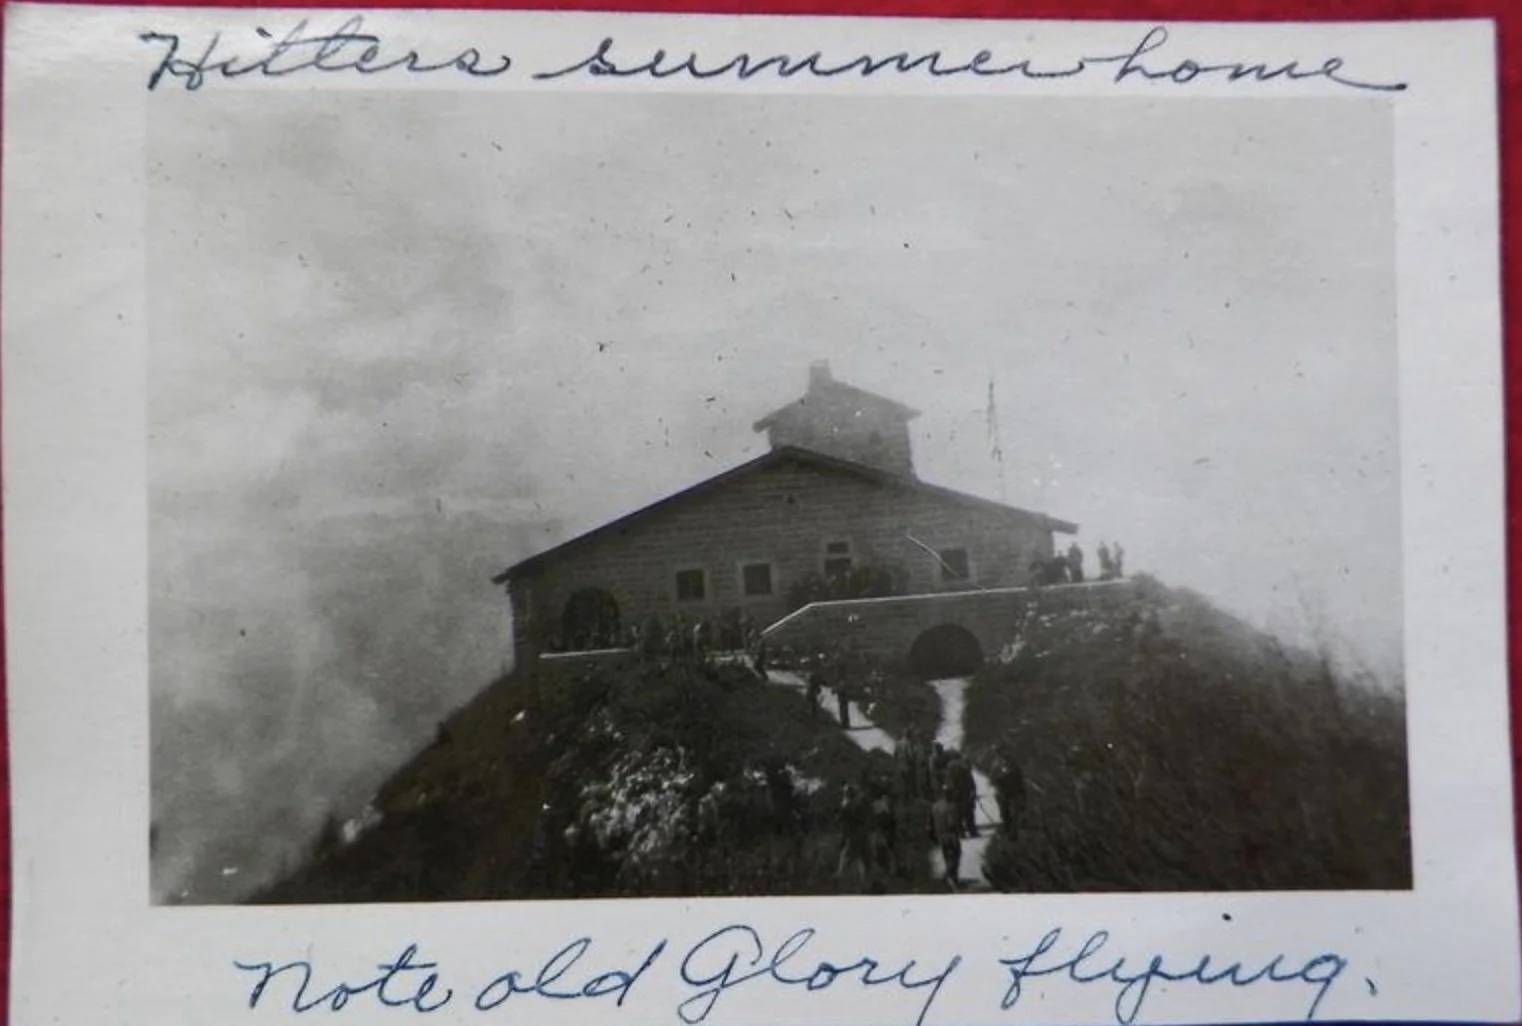 Hitlers summer home
Note old Glory flying.